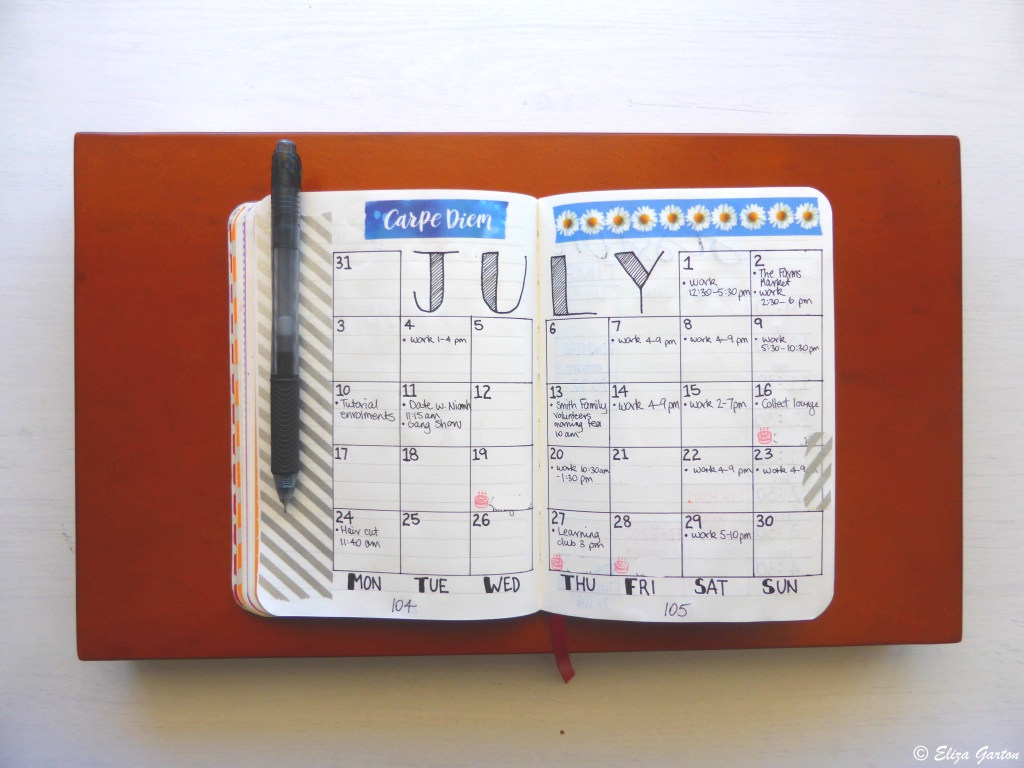 CARPE DIEM
JULY
31
1
• work
12:30-5:30pm
2
• The Farms
Market
• work
2:30-6 pm
3
4
• work 1-4 pm
5
6
7
• work 4-9 pm
8
• work 4-9 pm
9
• work
5:30-10:30pm
10
• Tutorial
enrolments
11
• Date w. Niamh
11:15am
• Gang Show
12
13
• Smith Family
volunteers
morning tea
10 am
14
• work 4-9pm
15
• work 2-7pm
16
• Collect lounge
17
18
19
20
• work 10:30am
-1:30 pm
21
22
• work 4-9 pm
23
• work 4-9
24
• Hair cut
11:40 am
25
26
27
• Learning
club 3 pm
28
29
• work 5-10pm
30
MON TUE WED THU FRI SAT SUN
104
105
© Eliza Garton